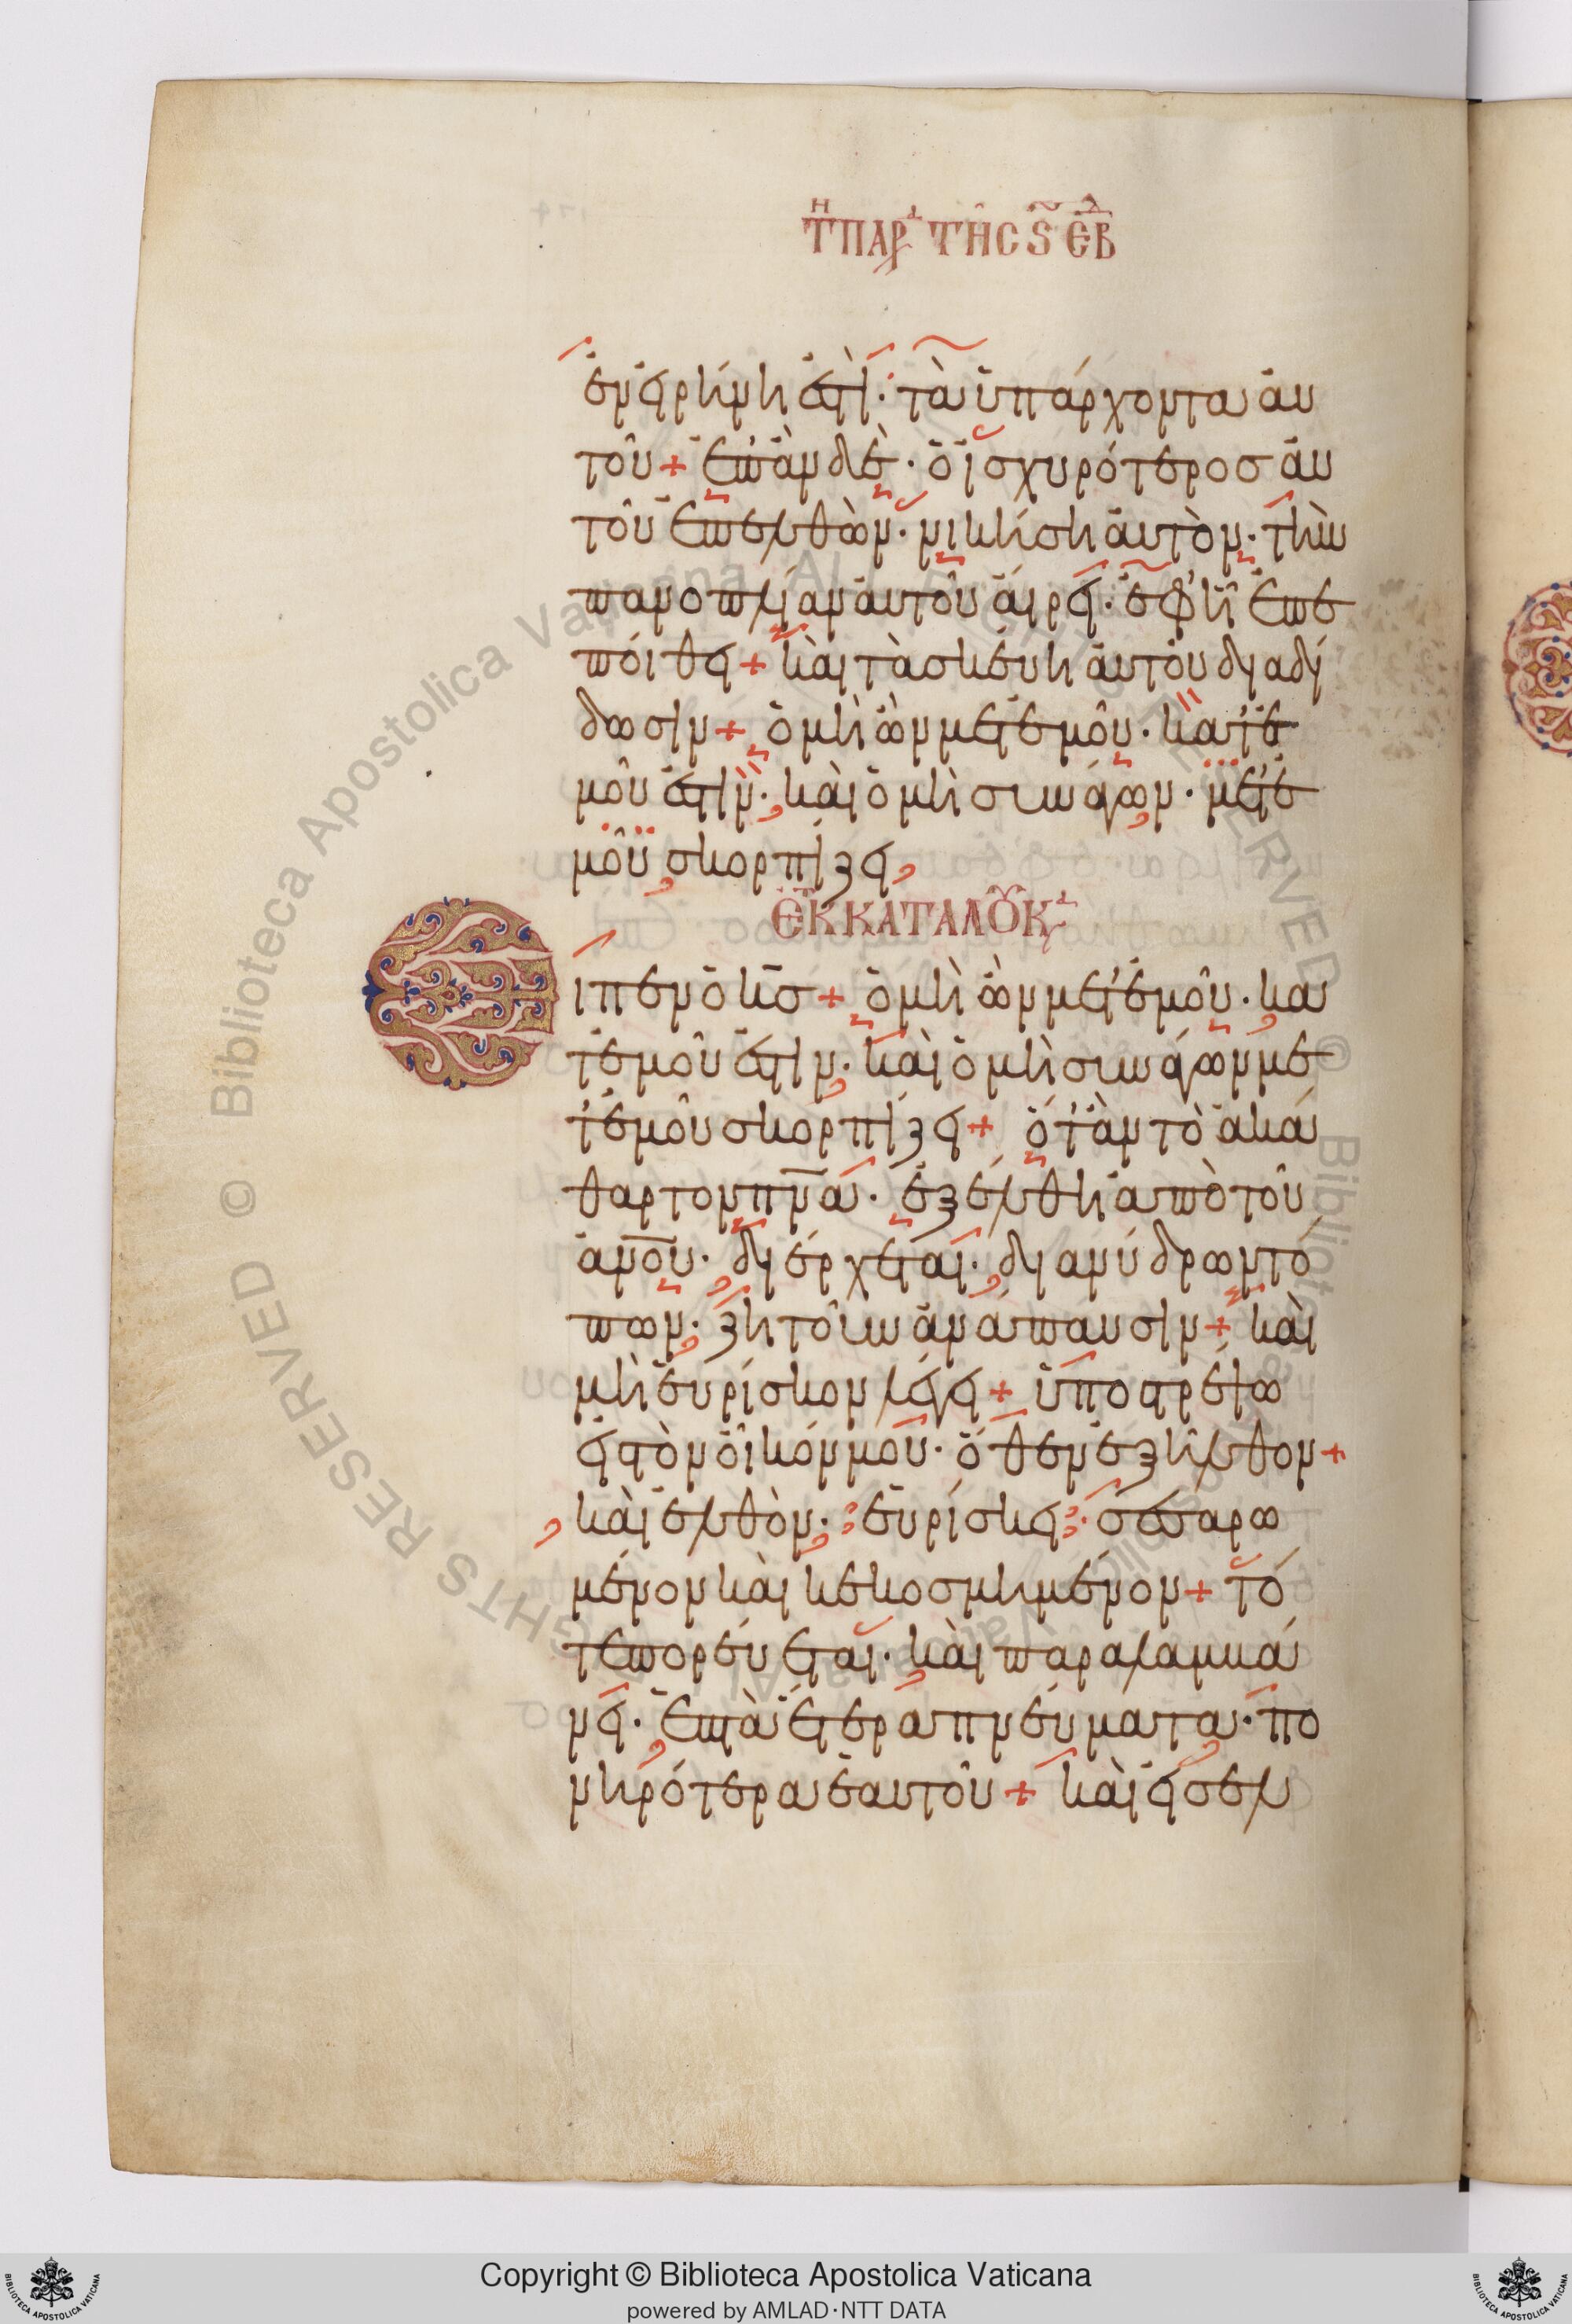 τῇ παρ τῆς ϛ ἑβδ
ἐν εἰρήνη ἐστὶ· τὰ ὑπάρχοντα αὐ
τοῦ + ἐπὰν δὲ· ὁ ἰσχυρότερος αὐ
τοῦ ἐπελθὼν· νικήση αὐτὸν· τὴν
πανοπλίαν αὐτοῦ αἴρει· ἐφ' ἧ ἐπε
ποίθει + καὶ τὰ σκεύη αὐτοῦ διαδί
δωσιν + ὁ μὴ ὢν μετ' ἐμοῦ· κατ' ἐ
μοῦ ἐστὶν· καὶ ὁ μὴ συνάγων· μετ' ἐ
μοῦ σκορπίζει
ἐκ κατὰ λουκ
Ειπεν ὁ κς + ὁ μὴ ὢν μετ' ἐμοῦ· κα
τ' ἐμοῦ ἐστιν· καὶ ὁ μὴ συνάγων με
τ' ἐμοῦ σκορπίζει + ὅτ' ἂν τὸ ἀκά
θαρτον πνα· ἐξέλθη ἀπὸ τοῦ
ανου· διέρχεται· δι ἀνύδρων τό
πων· ζητοῦν ἀνάπαυσιν + καὶ
μὴ εὑρίσκον λέγει + ὑποστρέψω
εἰς τὸν οἶκόν μου· ὅθεν ἐξῆλθον +
καὶ ἐλθὸν· εὑρίσκει· σεσαρω
μένον καὶ κεκοσμημένον + τό
τε πορεύεται· καὶ παραλαμβά
νει· ἑπτὰ ἕτερα πνεύματα· πο
νηρότερα ἑαυτοῦ + καὶ εἰσελ
Copyright © Biblioteca Apostolica Vaticana
powered by AMLAD·NTT DATA